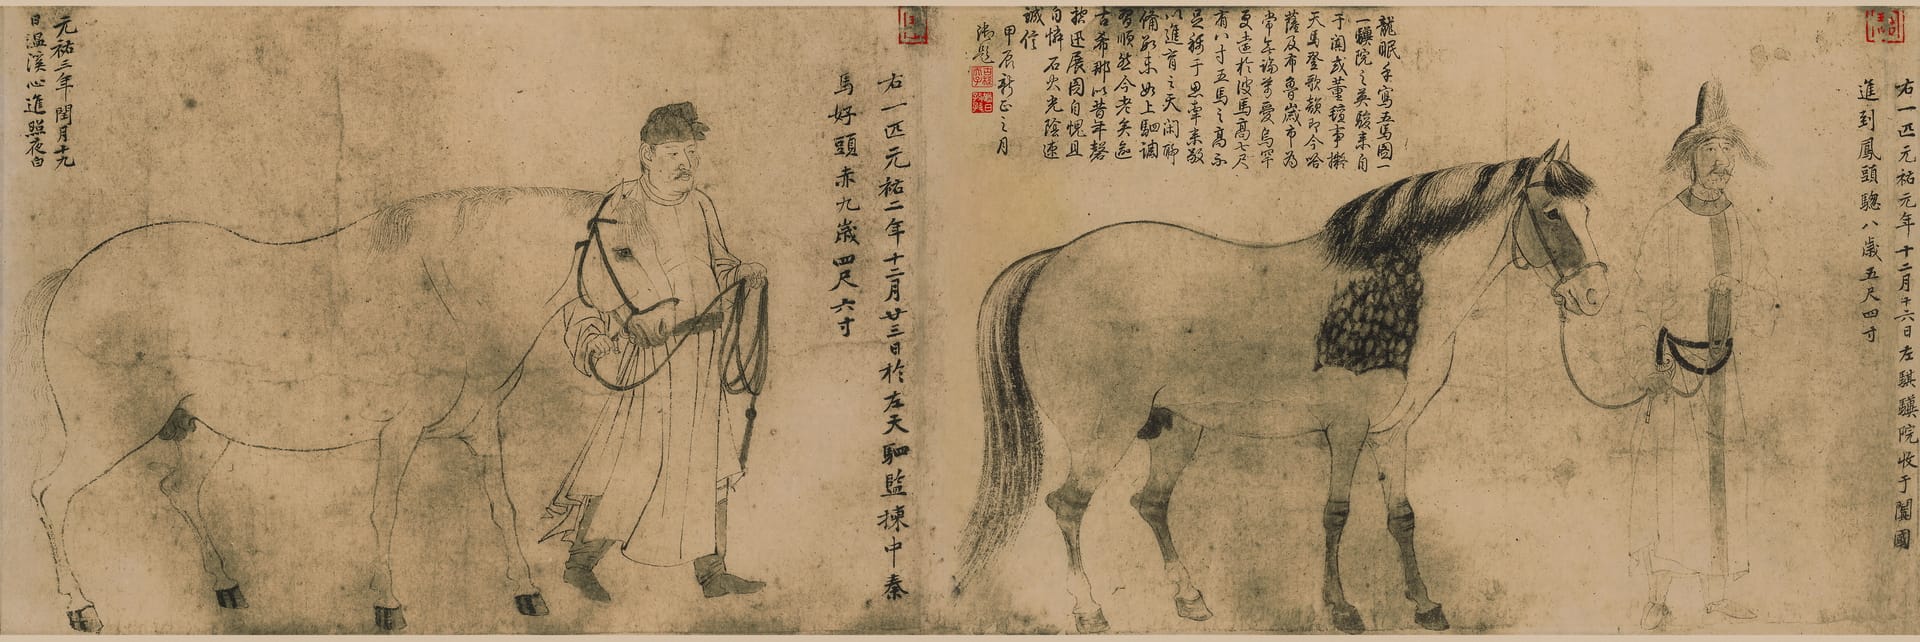 右一匹元祐元年十二月十六日左騏驥院收于闐國
進到鳳頭驄八歲五尺四寸
龍眠手寫五馬圖一
一驥院之英駿来自
于闐或董氊事
天馬登歌即今哈
薩及布魯歲市為
常無端愛烏罕
更遠於馬高七尺
有八寸五馬之高不
足稱于思牽来敬
以進育之天閑聊
備數来如上駟調
習順然今老矣逾
古希那以昔年磬
控迅展圖自愧且
自憐石火光陰速
誠信
甲辰新正之月
御題
古稀天子
猶日孜孜
右一匹元祐二年十二月廿三日於左天駟監揀中秦
馬好頭赤九歲四尺六寸
元祐三年閏月十九
日溫溪心進照夜白